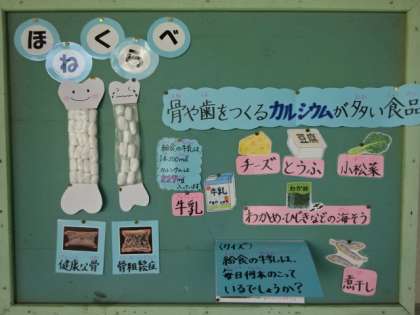 ほねくらべ
骨や歯をつくるカルシウムが多い食品
給食の牛乳は
1本200ml
カルシウムは
227mg
入っています
牛乳
牛乳
チーズ
豆腐
とうふ
小松菜
わかめ
わかめ・ひじきなどの海そう
健康な骨
骨粗鬆症
(クイズ)
給食の牛乳は、
毎日何本のこって
いるでしょうか?
煮干し